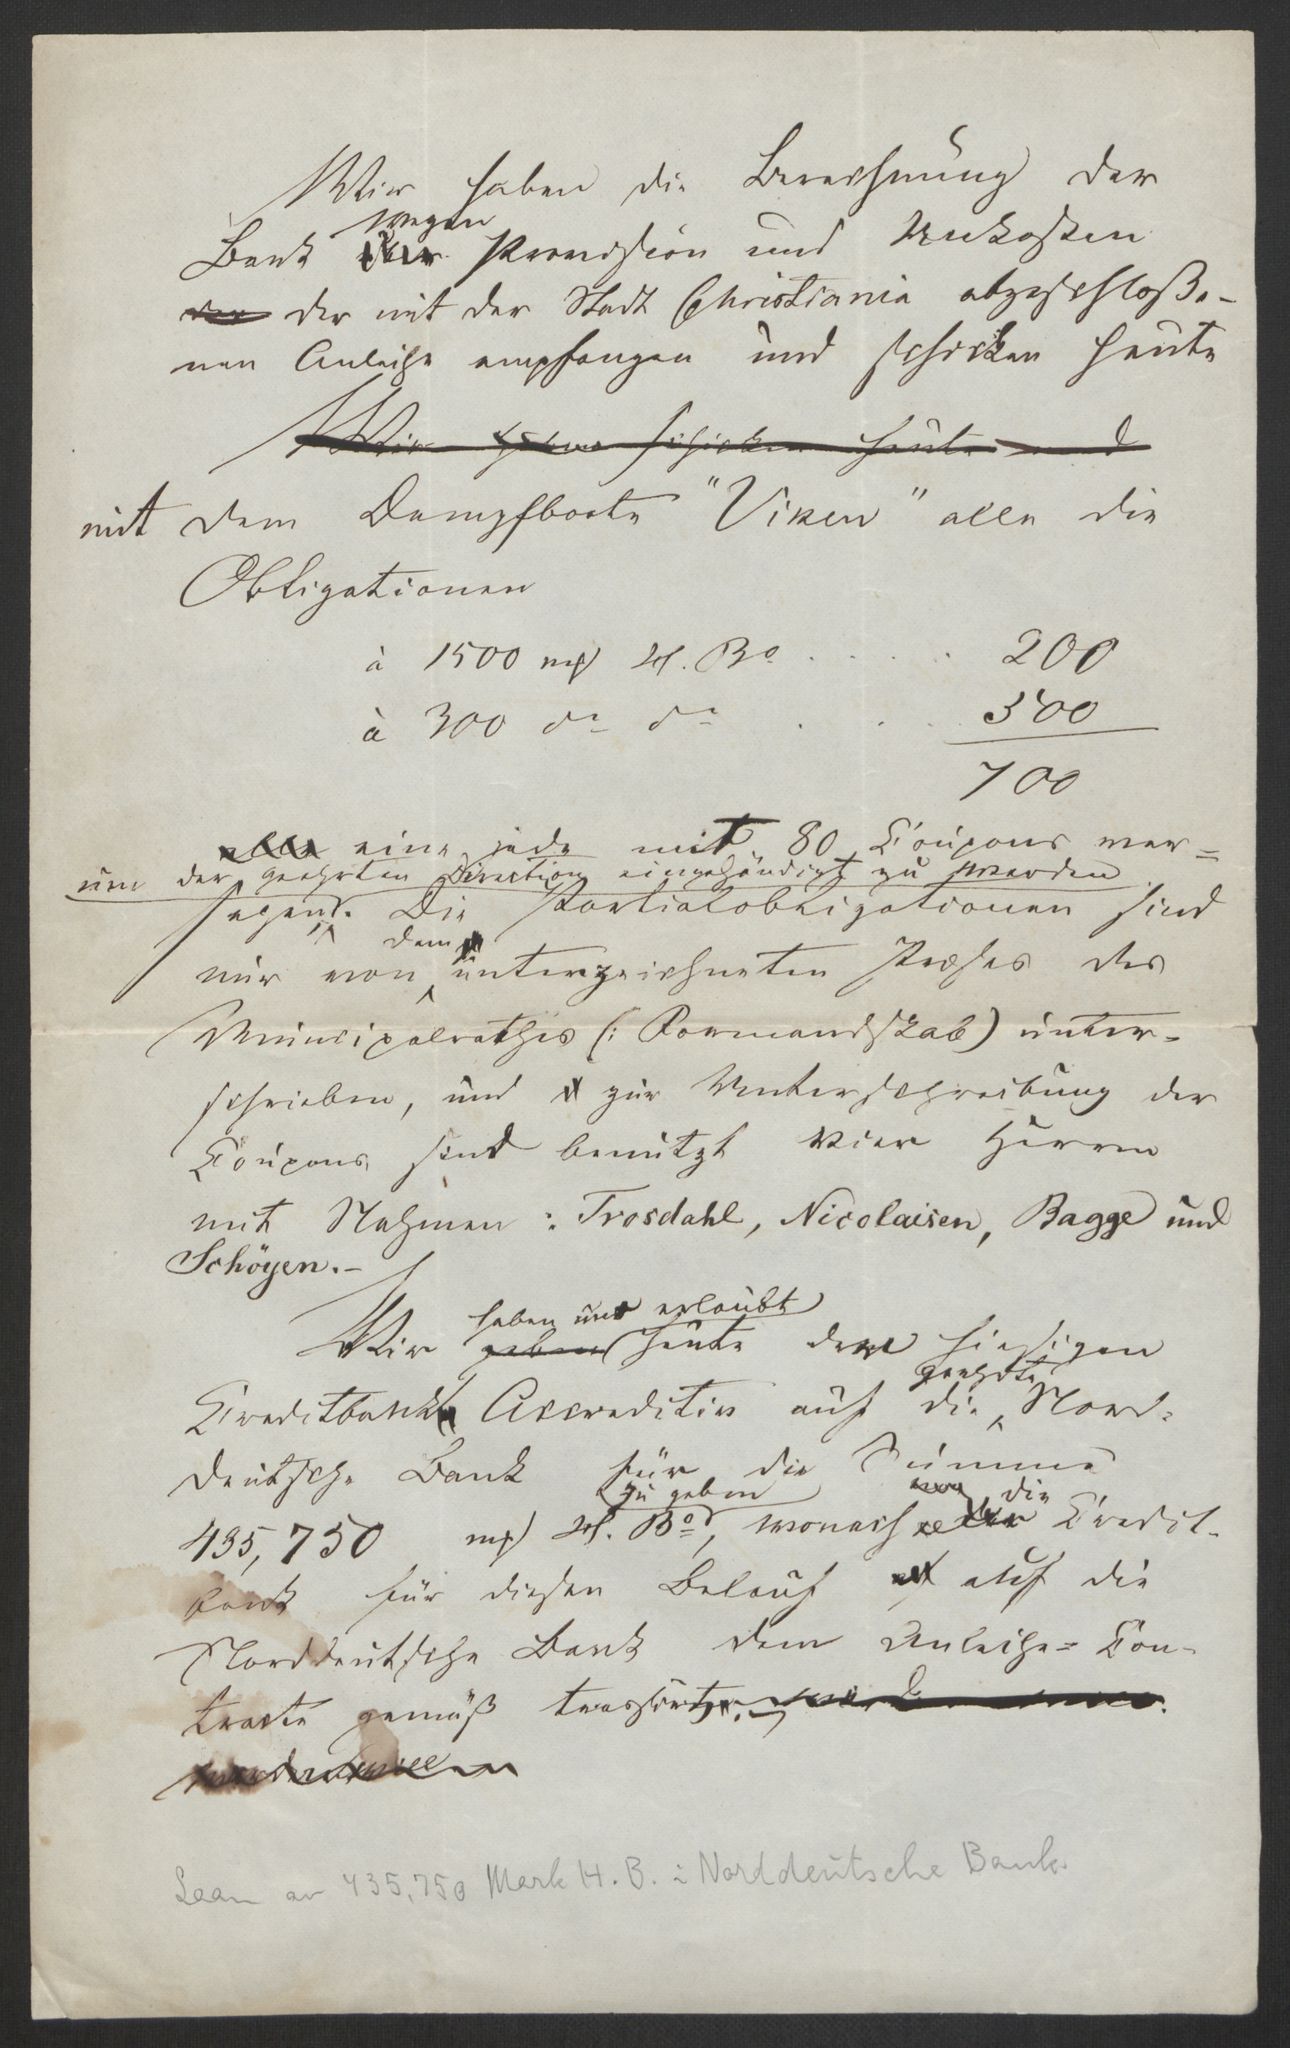 Wir haben die Berechnung der
wegen
Bank Provision und Unkosten
der mit der Stadt Christiania abgeschloße-
nen Anleihe empfangen und schicken heute
Wir schicken heute
mit dem Dampfboote "Viken" alle die
Obligationen
à 1500 mk H. Bo . . . . . 200
à 300 do do . . . . 500
700
alle eine jede mit 80 Coupons ver=
um der geehrten Direction eingehändigt zu werden
sehen. Die Partialobligationen sind
dem
nur von unterzeichneten Præses des
Municipalrathes (: Formandskab) unter-
schrieben, und zur Unterschreibung der
Coupons sind benützt vier Herren
mit Nahmen: Trosdahl, Nicolaisen, Bagge und
Schöyen.-
haben uns erlaubt
Wir geben heute der hiesigen
geehrte
Creditbank Accreditiv auf die Nord-
deutsche Bank für die Summe
zu geben die
435,750 mk H. Bo, wonach Credit-
bank für diesen Belauf auf die
Norddeutsche Bank dem Anleihe= Con-
tracte gemäß trassirt.
Laan av 435,750 Mark H. B. i Norddeutsche Bank